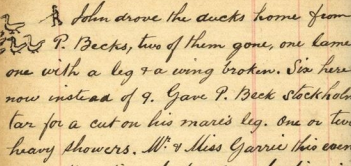 John drove the ducks home from
P. Becks, two of them gone, one lame
one with a leg & a wing broken. Six here
now instead of 9. Gave P. Beck Stockholm
tar for a cut on his mare's leg. One or two
heavy showers. Mr & Miss Garrie this even